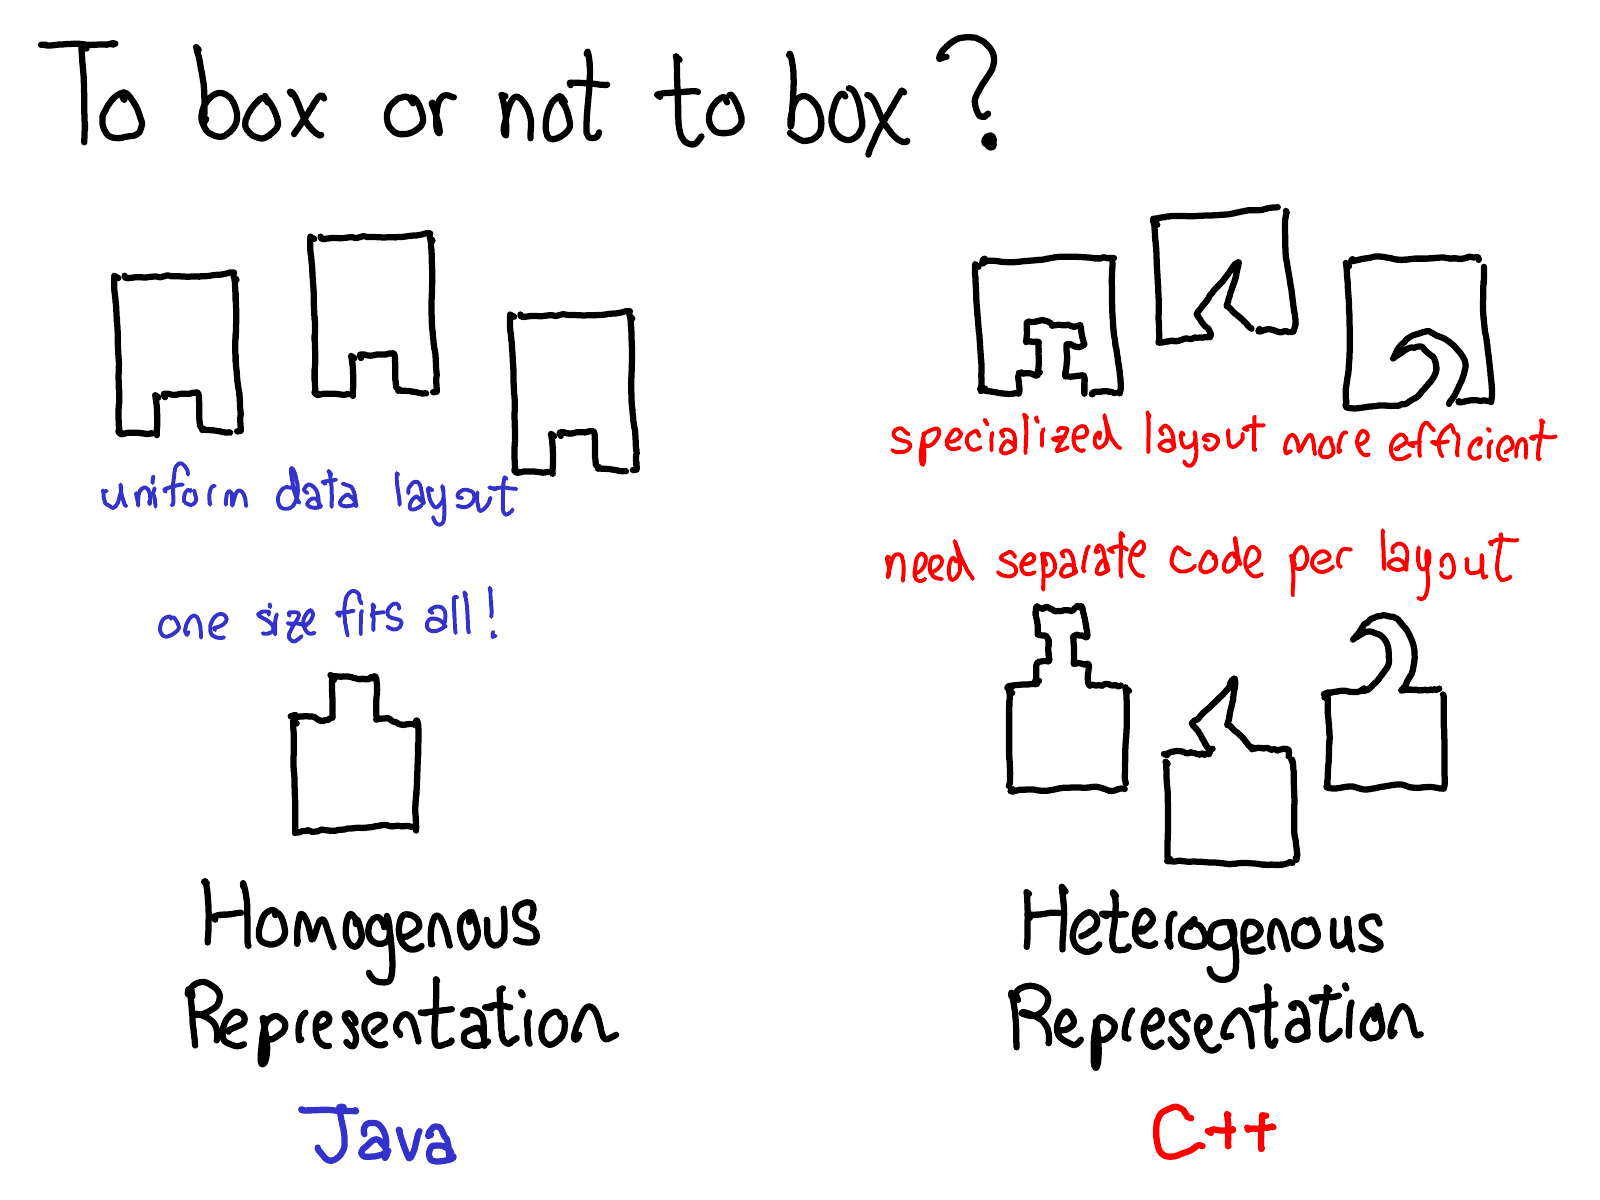 To box or not to box?
uniform data layout
one size fits all!
Homogenous
Representation
Java
specialized layout more efficient
need separate code per layout
Heterogenous
Representation
C++